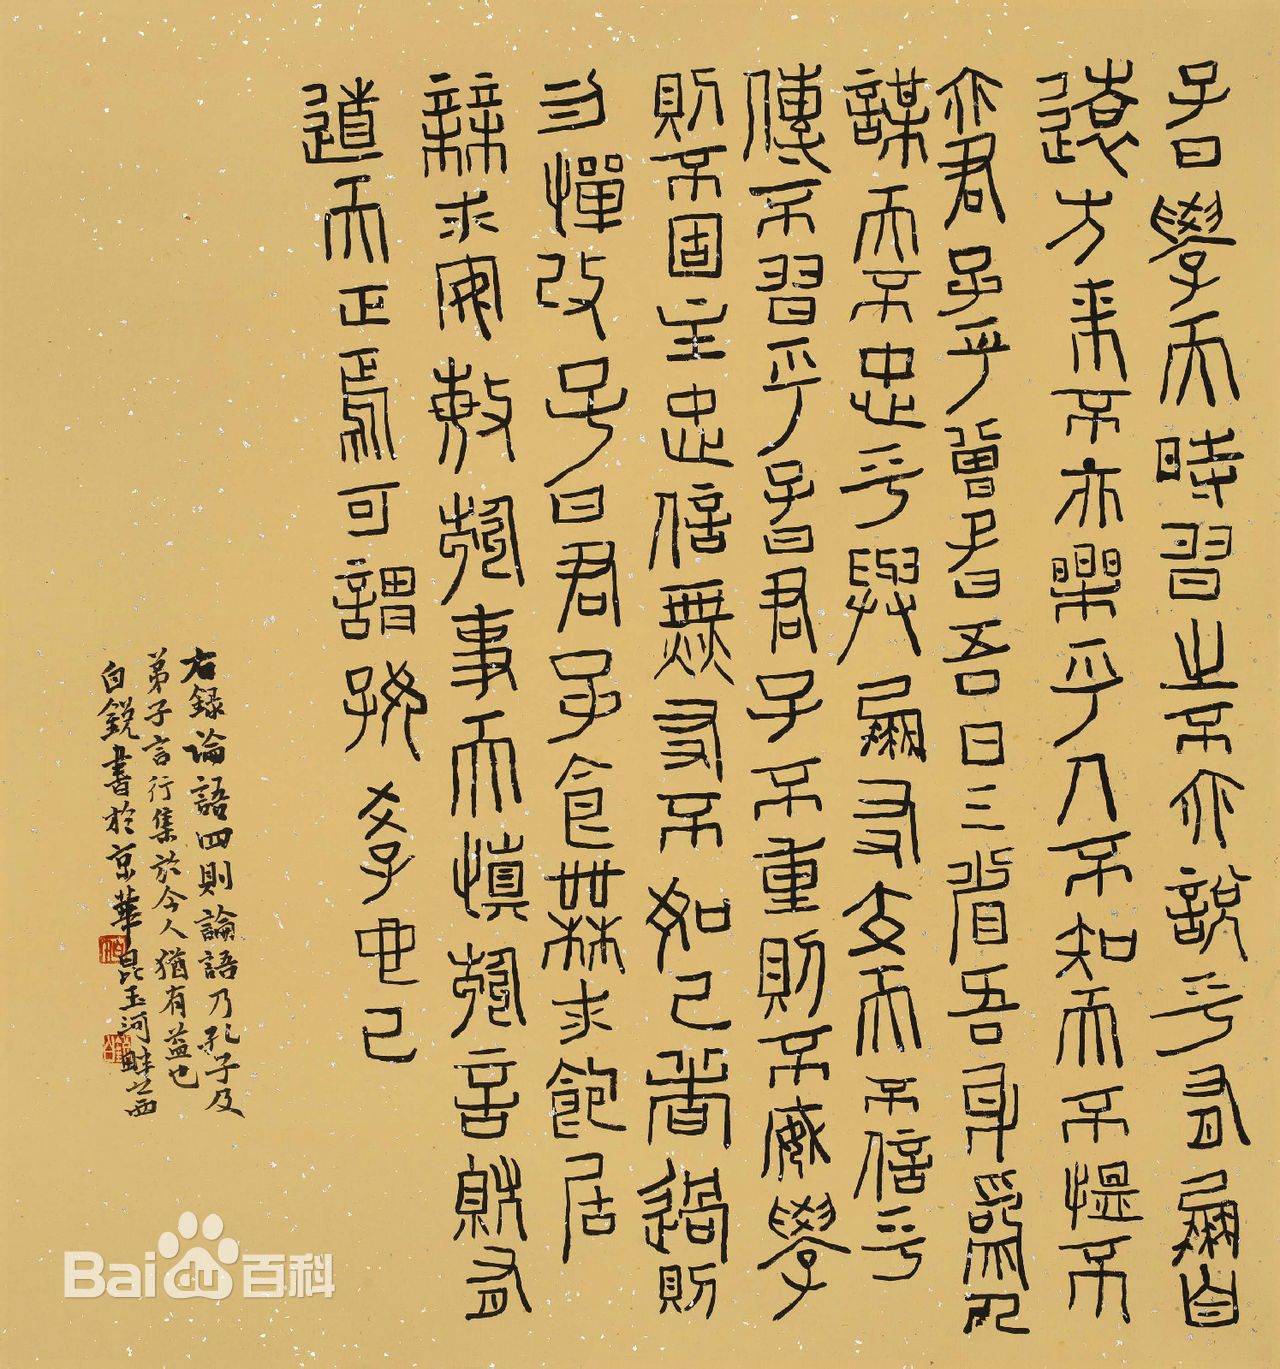 子曰學而時習之不亦説乎有朋自
遠方來不亦樂乎人不知而不慍不
亦君子乎曾子曰吾日三省吾身爲人
謀而不忠乎與朋友交而不信乎
傳不習乎子曰君子不重則不威學
則不固主忠信無友不如己者過則
勿憚改子曰君子食無求飽居
無求安敏於事而慎於言就有
道而正焉可謂好學也已
右録論語四則論語乃孔子及
弟子言行集於今人猶有益也
白鋭書於京華昆玉河畔之西
Bai百科